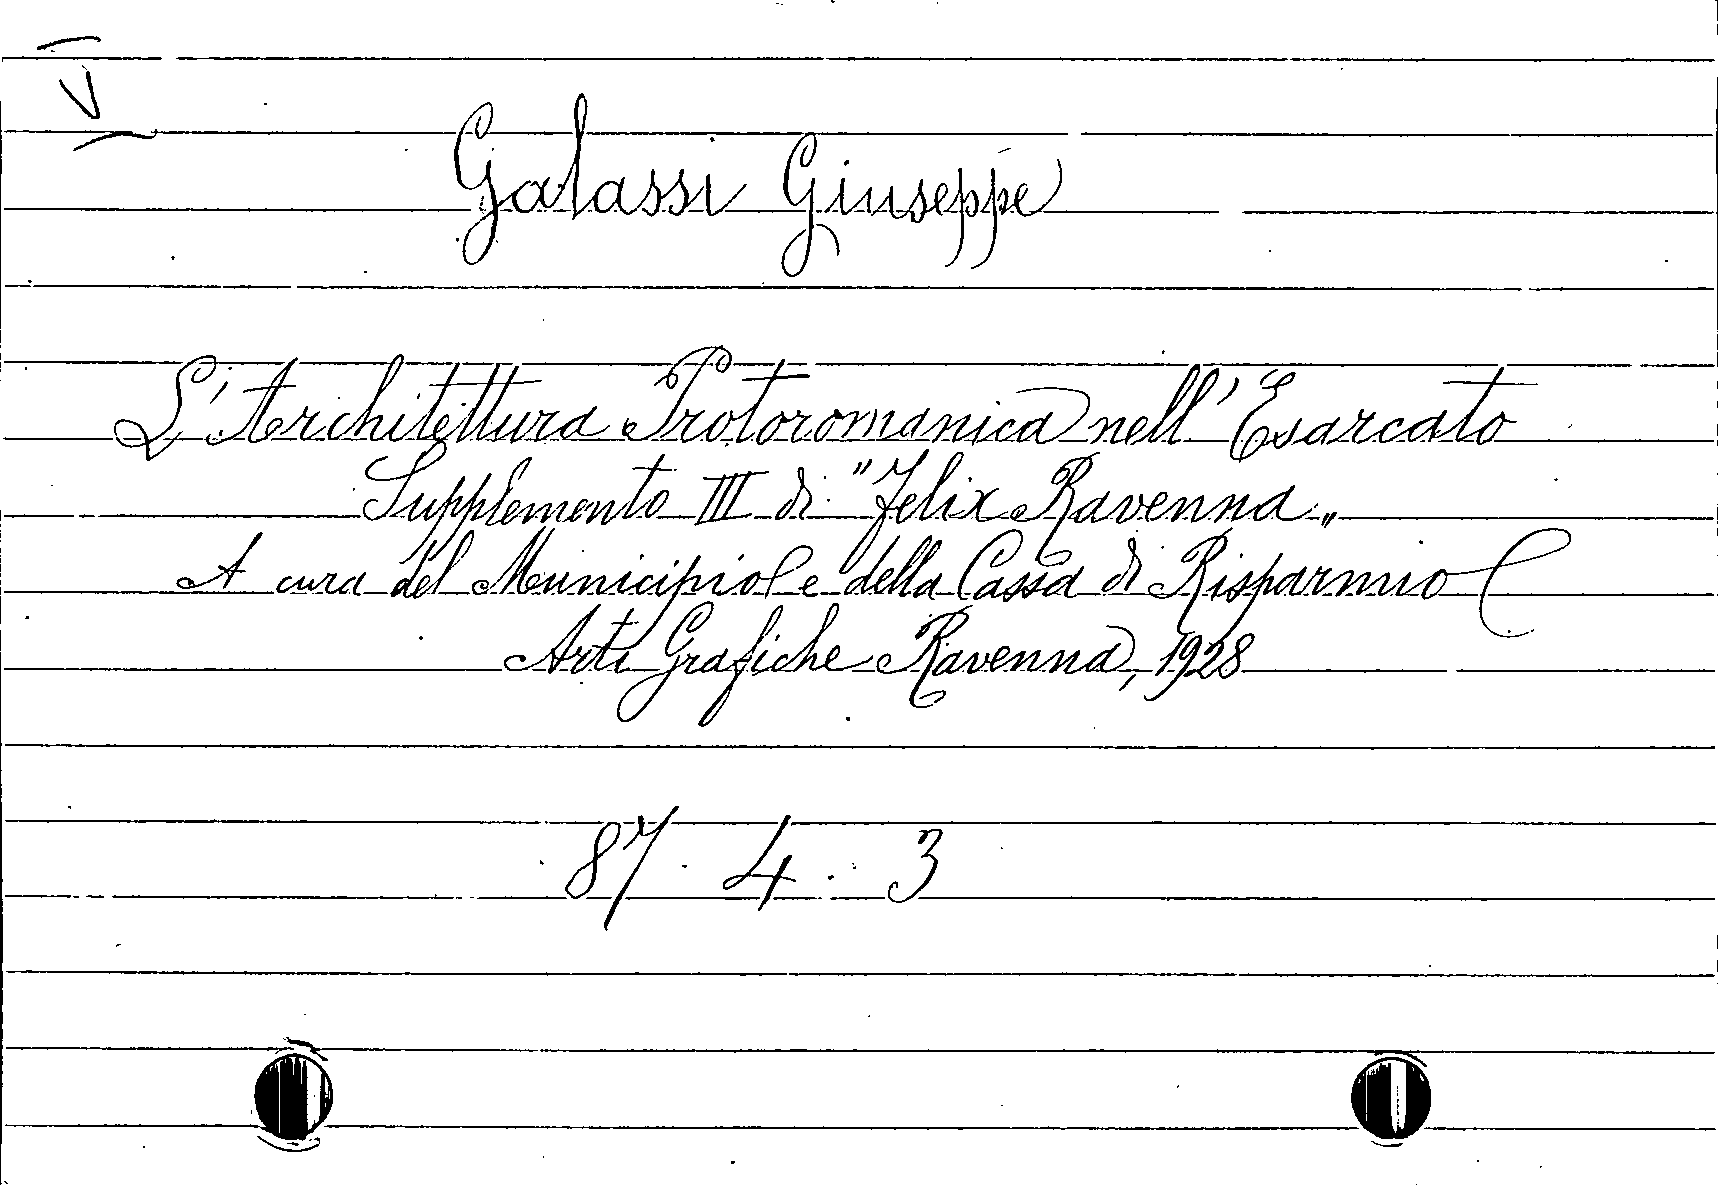 V
Galassi Giuseppe
L'Architettura Protoromanica nell' Esarcato
Supplemento III di "Felix Ravenna„
A cura del Municipio e della Cassa di Risparmio
Arti Grafiche Ravenna, 1928
87. 4. 3